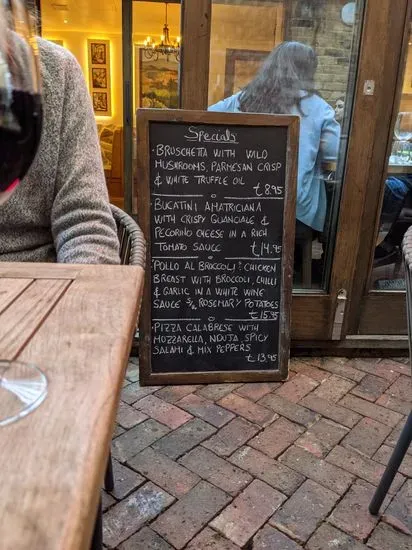 Specials
• BRUSCHETTA WITH WILD
MUSHROOMS, PARMESAN CRISP
& WHITE TRUFFLE OIL
£8.95
• BUCATINI AMATRICIANA
WITH CRISPY GUANCIALE &
PECORINO CHEESE IN A RICH
TOMATO SAUCE £14.95
• POLLO AL BROCCOLI: CHICKEN
BREAST WITH BROCCOLI, CHILLI
& GARLIC IN A WHITE WINE
SAUCE S/W ROSEMARY POTATOES
£15.95
• PIZZA CALABRESE WITH
MOZZARELLA, NDUJA, SPICY
SALAMI & MIX PEPPERS
£13.95